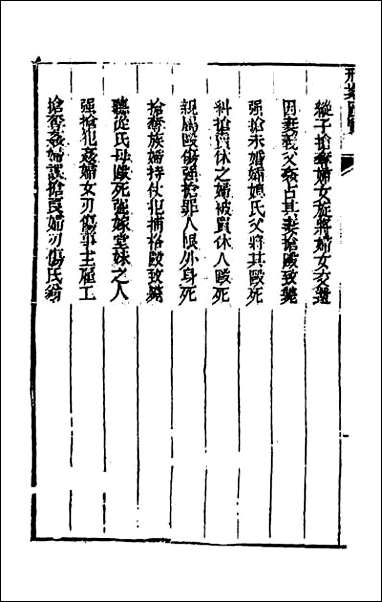 刑案匯覽
縱子搶奪婦女旋將婦女交還
因妻義父姦占其妻搶毆致斃
强搶未婚孀媳氏父將其毆死
糾搶賣休之婦被買休人毆死
親屬毆傷强搶罪人限外身死
搶奪族婦持仗犯捕格毆致斃
聽從氏母毆死强嫁堂妹之人
强搶犯姦婦女刃傷事主雇工
搶奪姦婦誤搶良婦刃傷氏翁